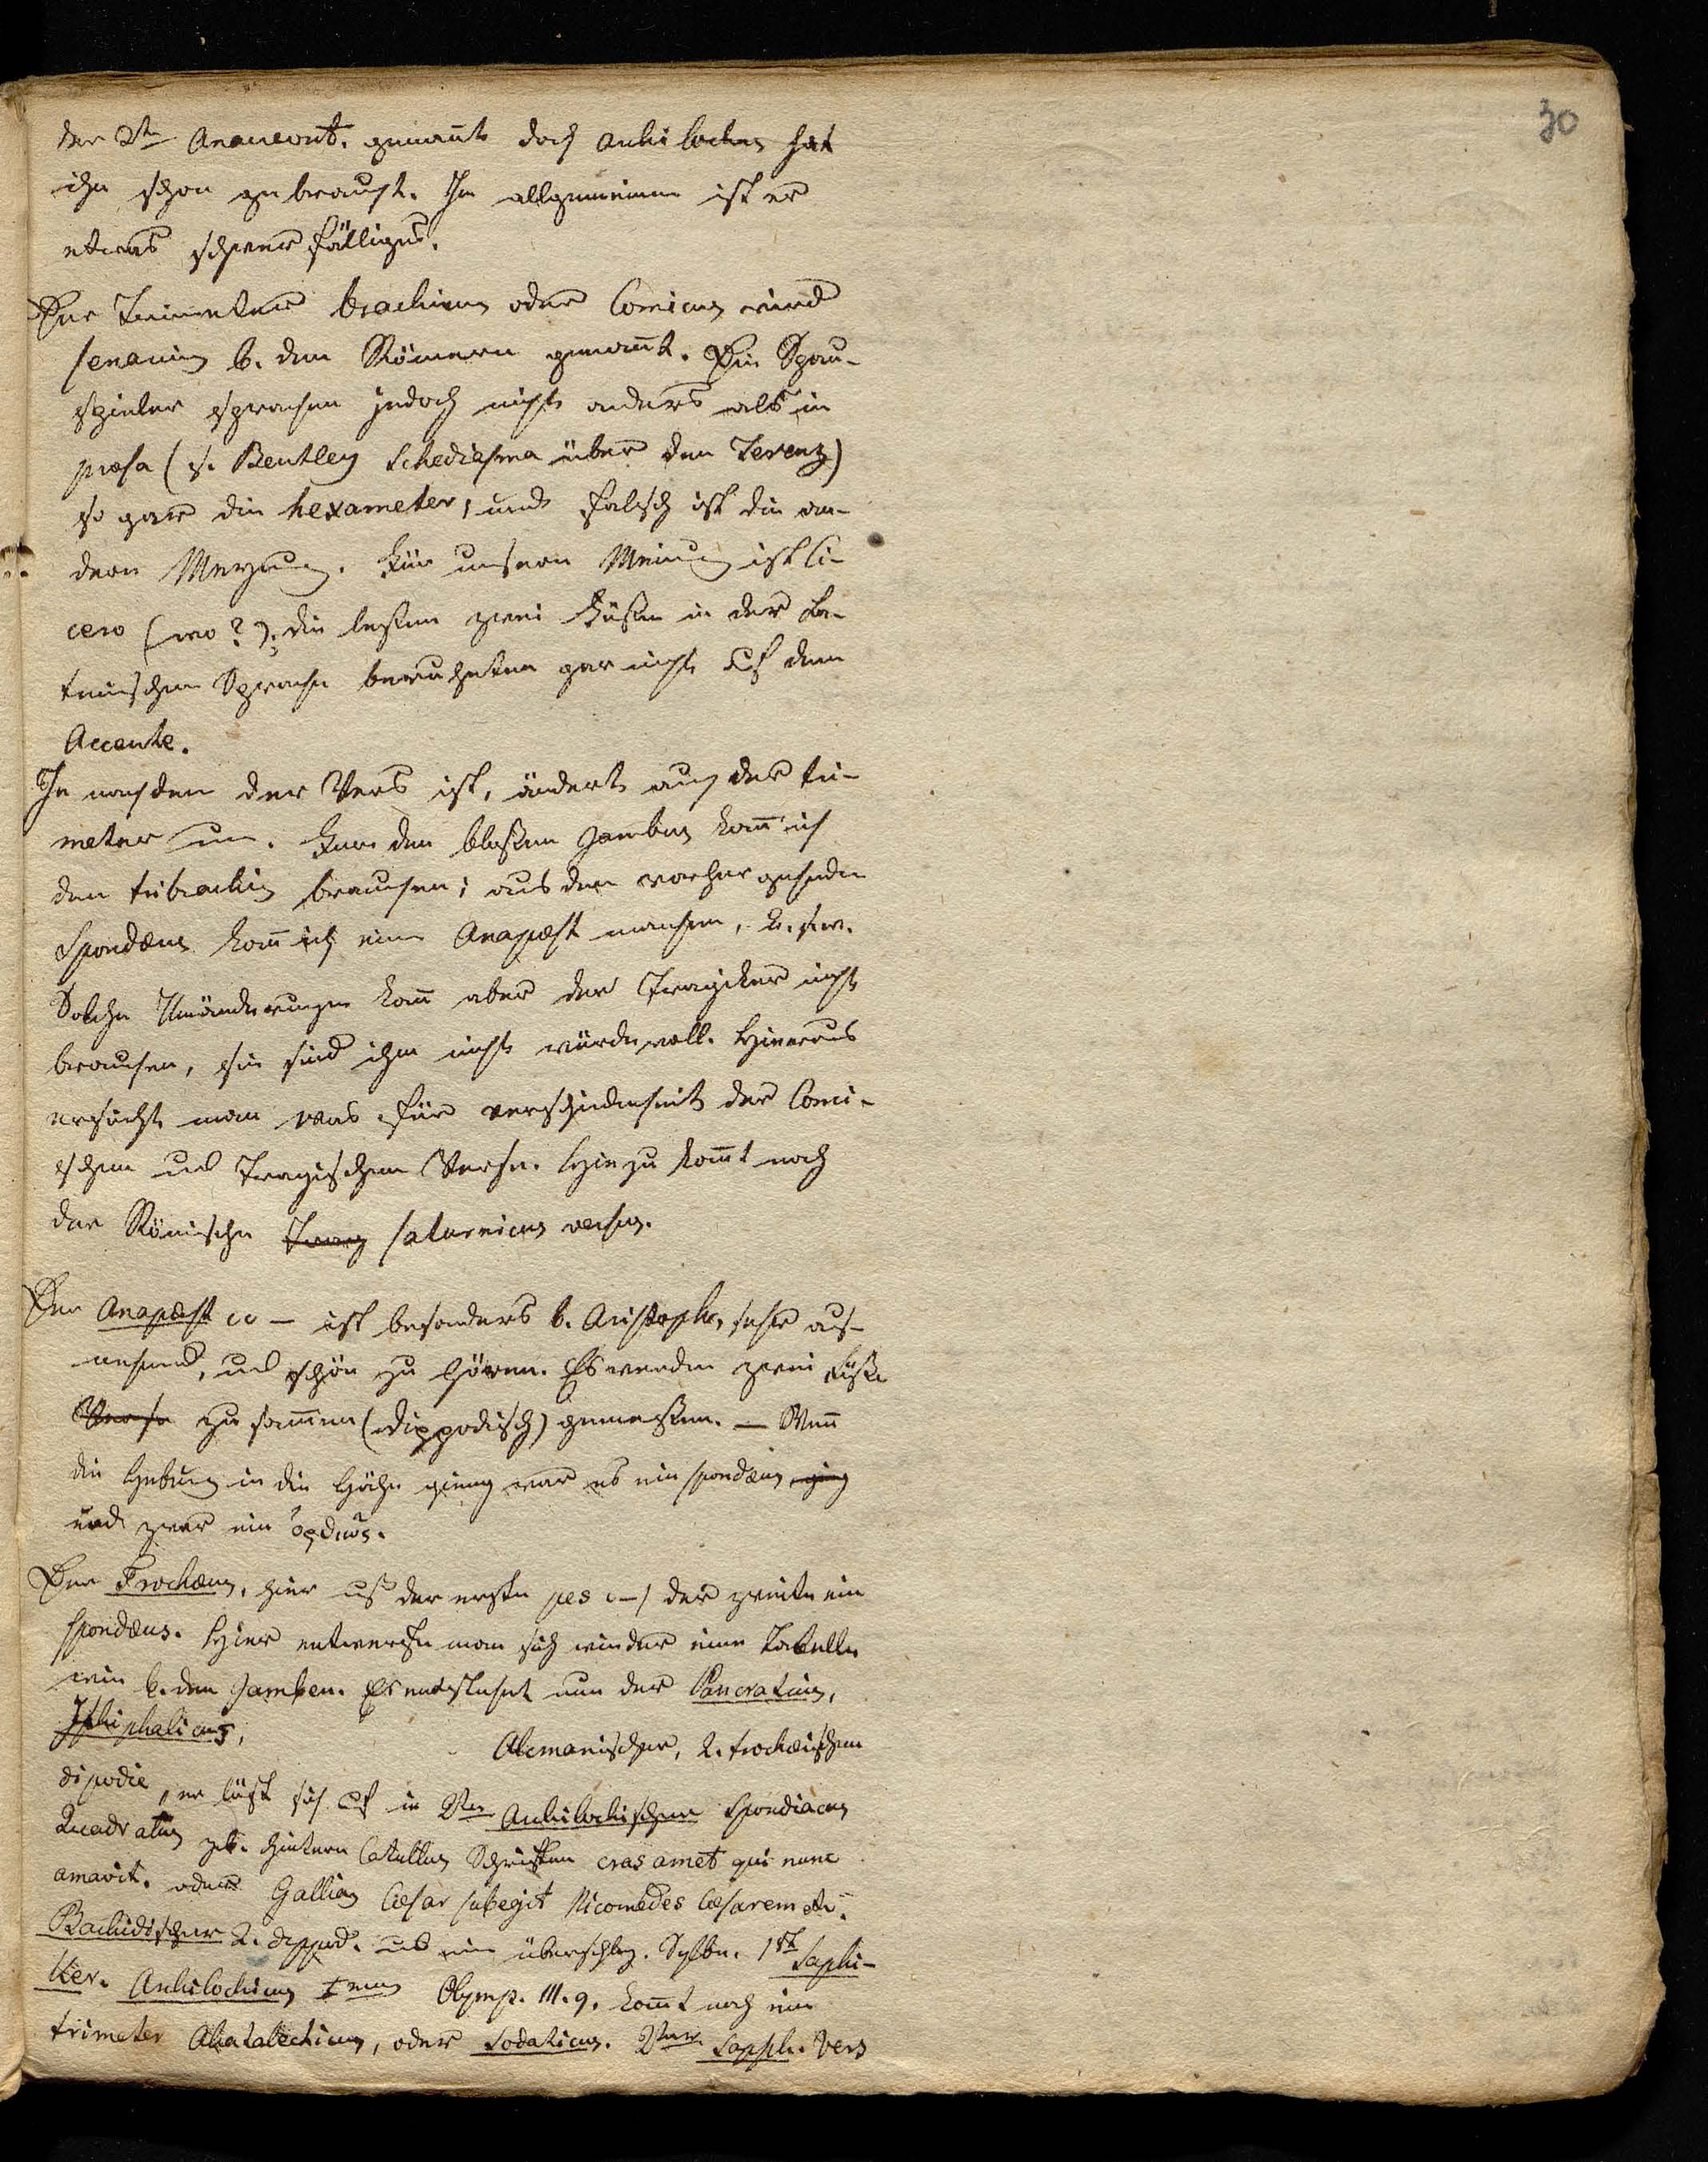 30
der 2te Anacreont. genannt doch Archilochus hat
ihn schon gebraucht. Im allgemeinen ist er
etwas schwerfälliger.
Der Trimeter brachicus oder Comicus wird
senarius b. den Römern genannt. Die Schau-
spieler sprachen jedoch nicht anders als in
prosa (s. Bentley Schediasma über den Terenz)
so gar die hexameter, und falsch ist die an-
dern Meynung. Für unsern Meinung ist Ci-
cero (wo?). die letzten zwei Füßen in der La-
teinischen Sprache beruheten gar nicht auf dem
Accente.
Je nachdem der Vers ist, ändert auch der tri-
meter um. Für den bloßen Jambus kann ich
den tribrachis brauchen; aus dem vorhergehenden
Spondæus kann ich einen Anapæst machen, u. s. w.
Solche Umänderungen kann aber der Tragiker nicht
brauchen, sie sind ihm nicht würdevoll. Hieraus
ersieht man was für verschiedenheit der Comi-
schen und Tragischen Verse. Hiezu kommt noch
der Römische Trag saturnicus versus.
Der Anapæst υυ – ist besonders b. Aristoph. sehr aus-
nehmend, und schön zu hören. Es werden zwei Füße
Verse zusammen (dippodisch) gemessen. — Wenn
die Hebung in die Höhe gieng war es ein spondæus ging
und zwar ein ὄρθιος.
Der Trochæus, hier ist der erste pes υ–/ der zweite ein
spondæus. Hier entwerfe man sich wieder eine Tabelle
wie b. den Jamben. Es entstehet nun der Pancratius,
Ithiphalicus,
Alcmanischer, 2. trochæischen
dipodie, er läßt sich auf in 2ten Archilochischen Spondiacus
Quadratus zb. hintern Catullus Schriften cras amet qui nunc
amavit. oder Gallias Cæsar subegit Nicomedes Cæsarem etc.
Bachidischer 2. dippod. und eine überschlag. Sylbe. 1ste Saphi-
ker. Archilochius Imus Olymp. III. 9. kommt noch ein
trimeter Akatalecticus, oder Sodaticus. 2ter Sapph. Vers